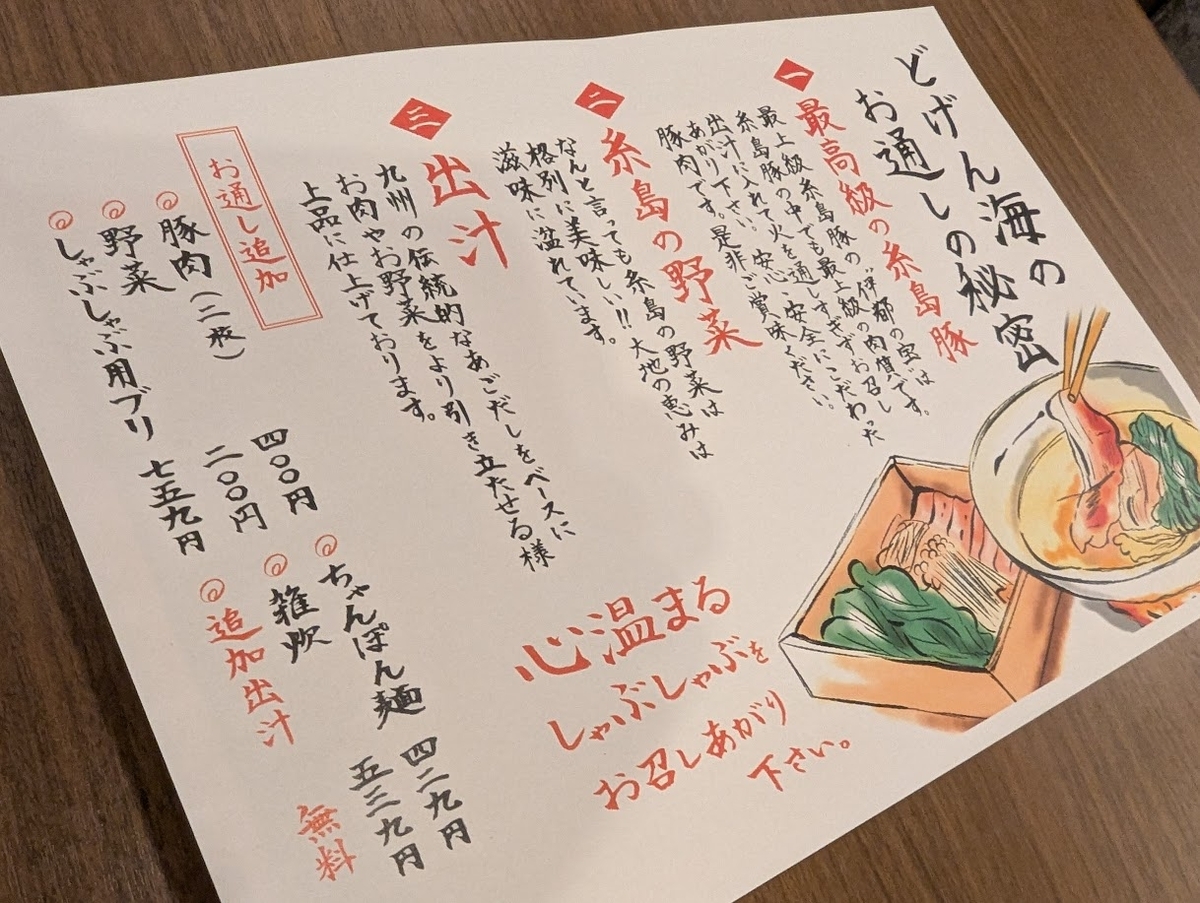 どげん海の
お通しの秘密
一
最高級の糸島豚
最上級糸島豚の“伊都の宝”は
糸島豚の中でも最上級の肉質です。
出汁に入れて火を通しすぎずお召し
あがり下さい。安心・安全にこだわった
豚肉です。是非ご賞味ください。
二
糸島の野菜
なんと言っても糸島の野菜は
格別に美味しい!!大地の恵みは
滋味に溢れています。
三
出汁
九州の伝統的なあごだしをベースに
お肉やお野菜をより引き立たせる様
上品に仕上げております。
お通し追加
豚肉(二枚) 四〇〇円
野菜 二〇〇円
しゃぶしゃぶ用ブリ 七五九円
ちゃんぽん麺 四二九円
雑炊 五三九円
追加出汁 無料
心温まる
しゃぶしゃぶを
お召しあがり
下さい。